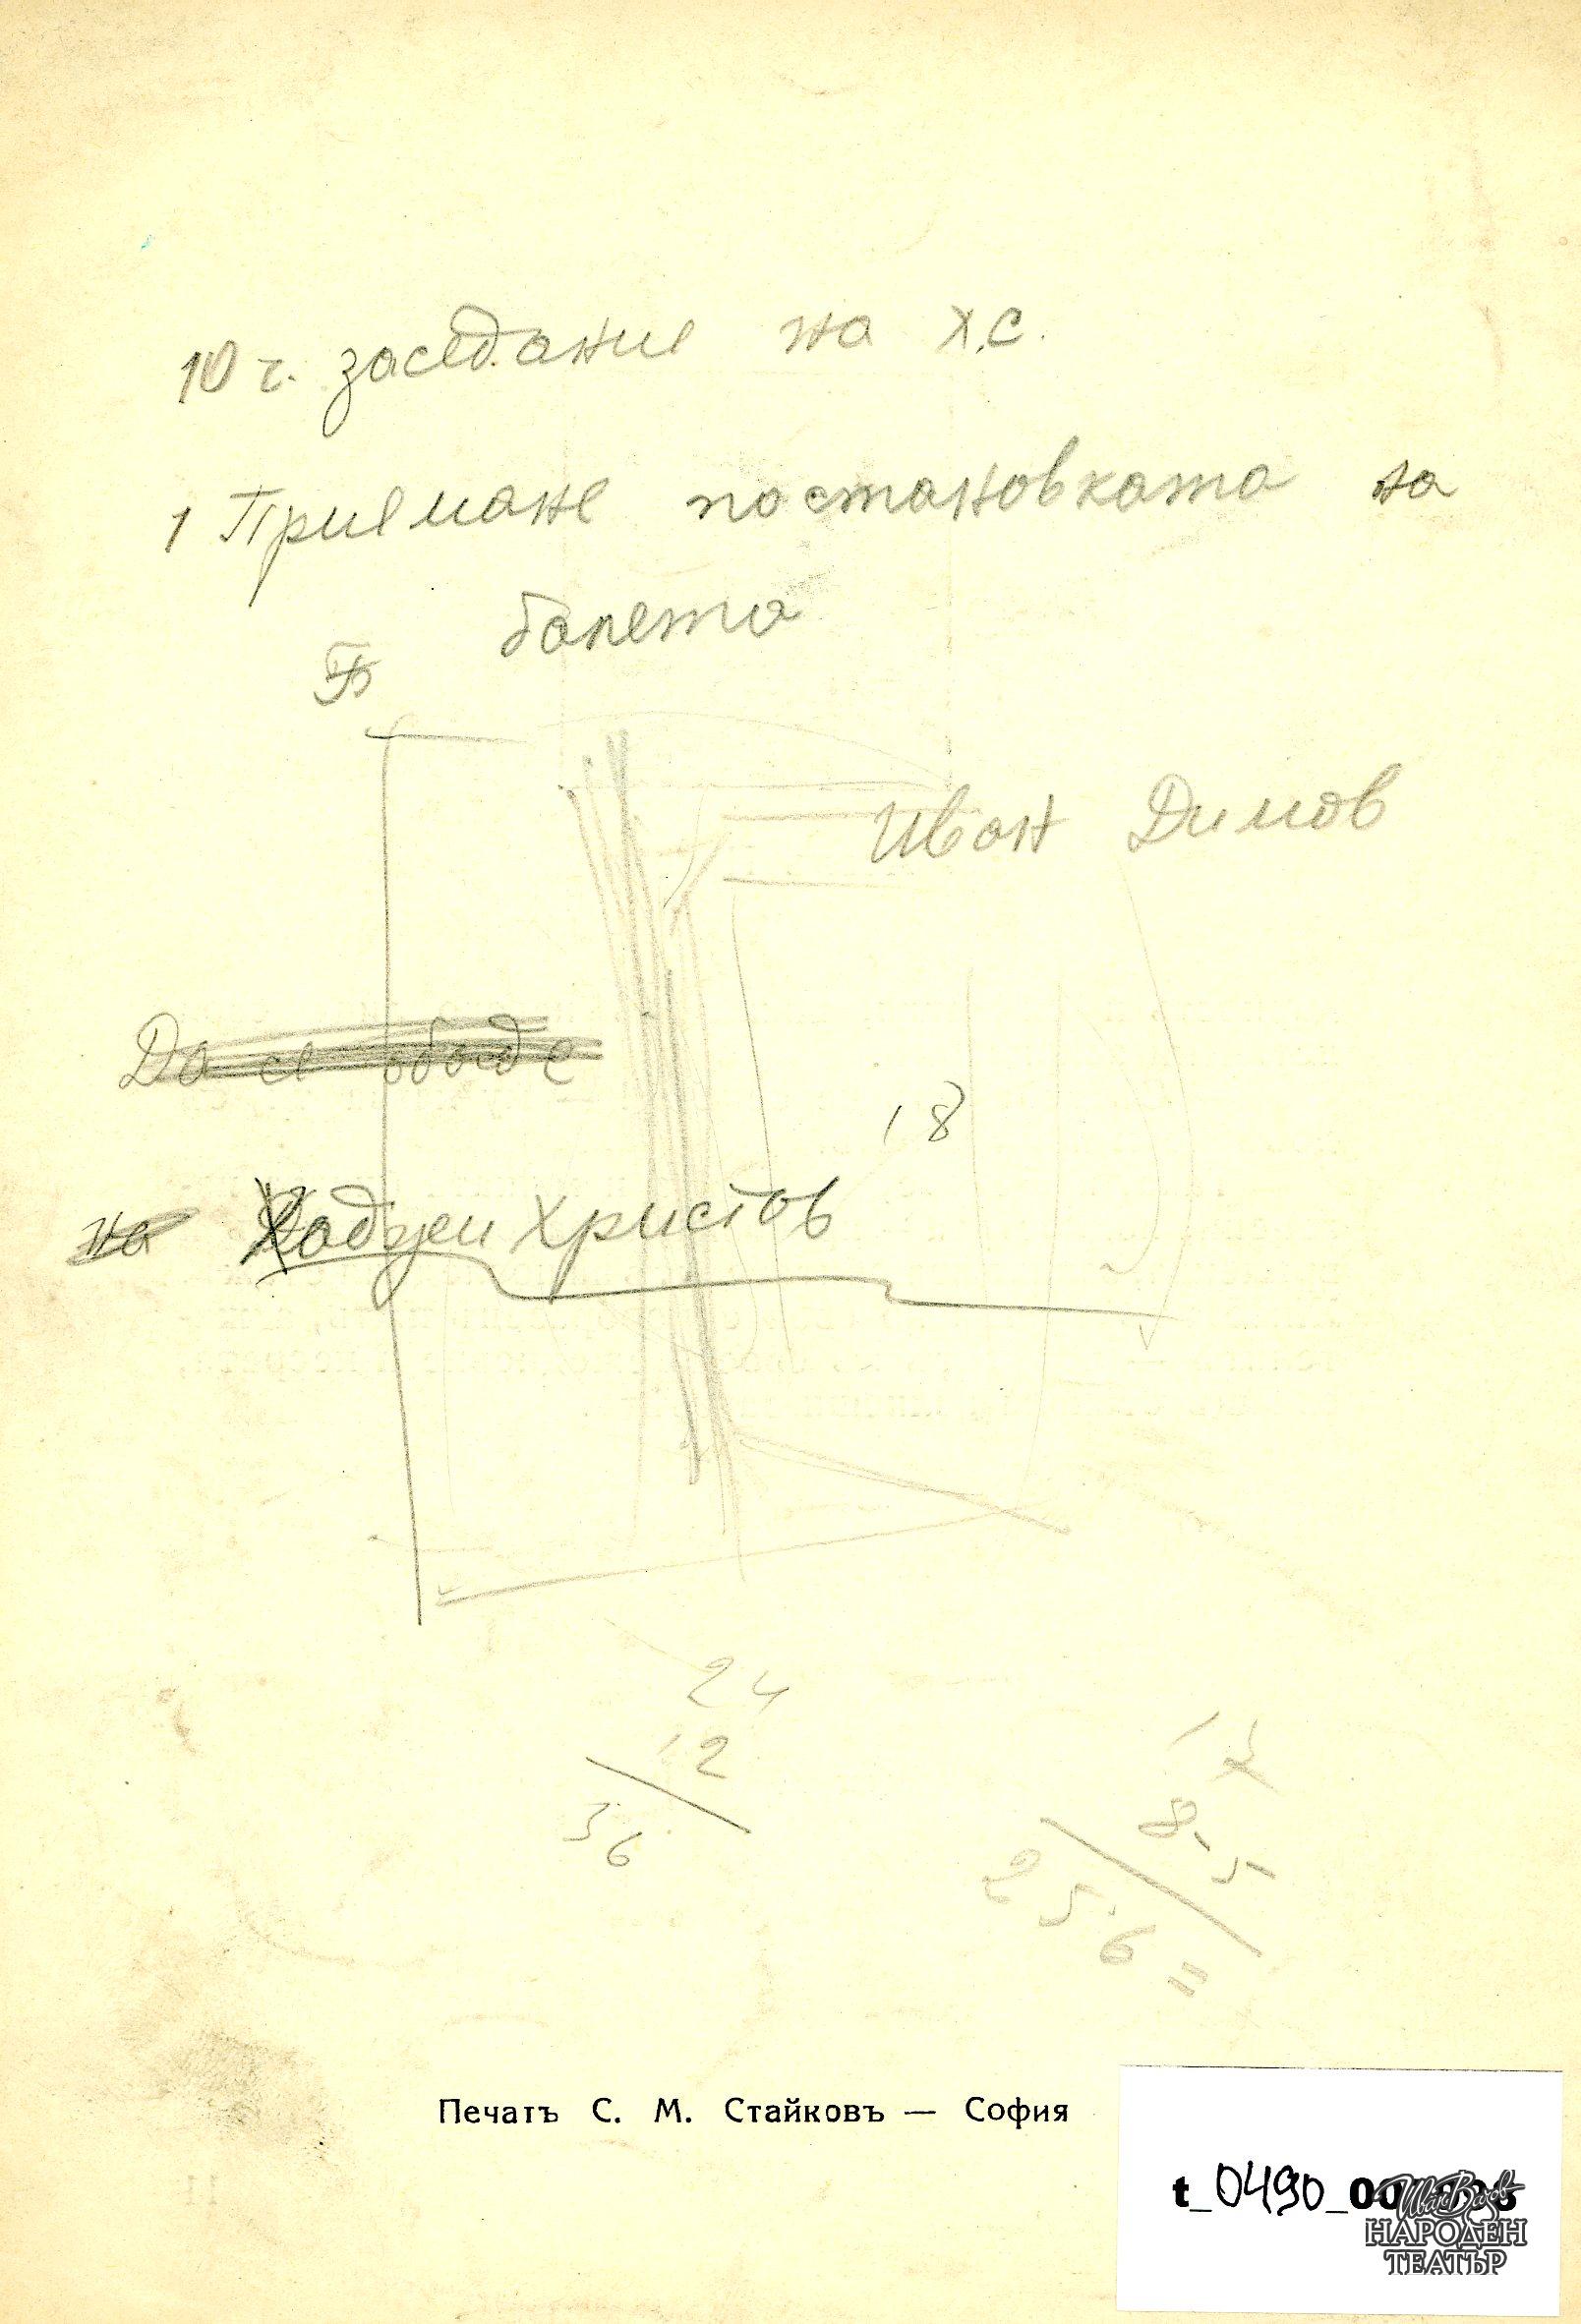 10 ч. заседание на х.с.
1 Приемане постановката на
балета
Иван Димов
Да се обади
18
на Хаджи Христов
24
12
36
17
8,5
256
Печатъ С. М. Стайковъ — София
t_0490_00
НАРОДЕН
ТЕАТЪР